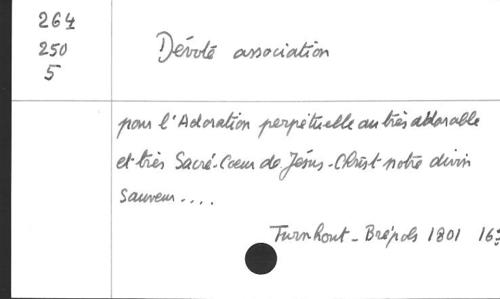 264
250
5
Dévote association
pour l'Adoration perpétuelle au très adorable
et très Sacré-Coeur de Jésus-Christ notre divin
Sauveur....
Turnhout - Brépols 1801 16: